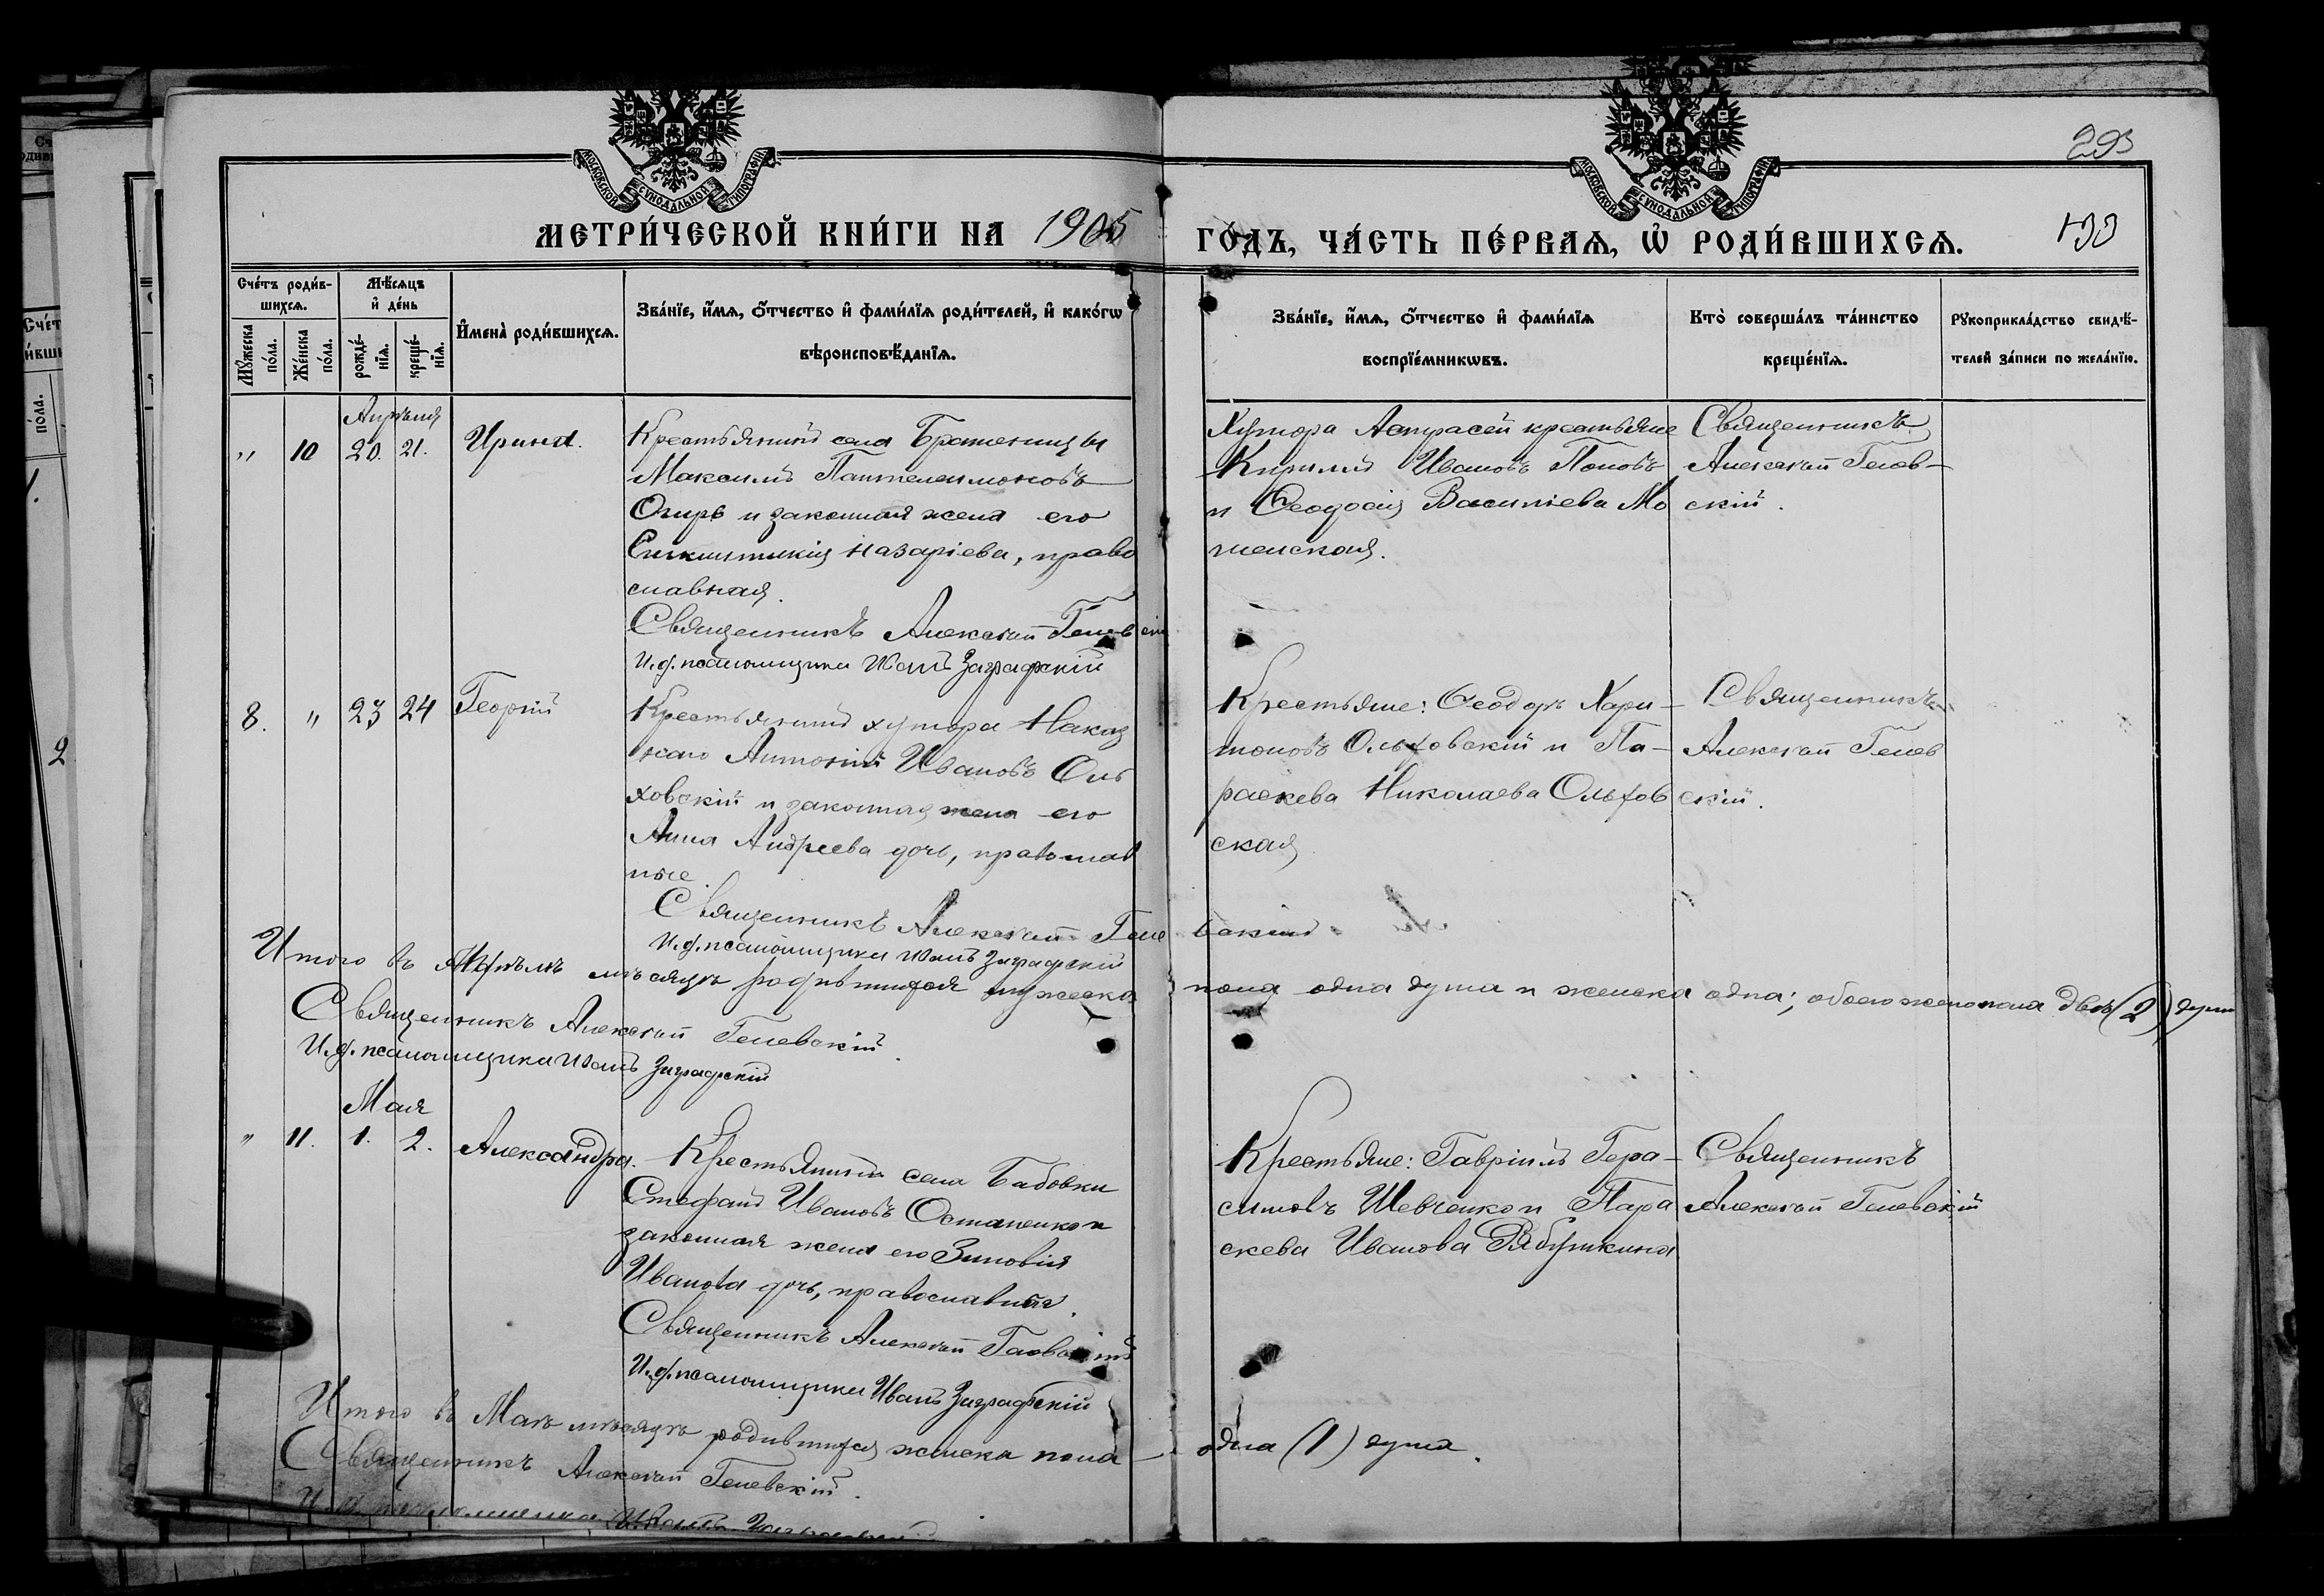 293
МОСКОВСКОЙ СѴНОДАЛЬНОЙ ТИПОГРАФІИ
МОСКОВСКОЙ СѴНОДАЛЬНОЙ ТИПОГРАФІИ
МЕТРИ́ЧЕСКОЙ КНИ́ГИ НА 1905
ГО́ДЪ, ЧА́СТЬ ПЕ́РВАѦ, Ѡ҆ РОДИ́ВШИХСѦ.
Сче́тъ роди́в-
шихсѧ.
Мꙋ́жеска по́ла.
Же́нска по́ла.
Мѣ́сѧцъ
и҆ де́нь
рожде́-
нїѧ.
креще́-
нїѧ.
И҆мена̀ роди́вшихсѧ.
Зва́нїе, и҆́мѧ, ѻ҆́тчество и҆ фами́лїѧ роди́телей, и҆ како́гѡ
вѣроисповѣ́данїѧ.
Зва́нїе, и҆́мѧ, ѻ҆́тчество и҆ фами́лїѧ
воспрїе́мникѡвъ.
Кто̀ соверша́лъ та́инство
креще́нїѧ.
Рꙋкоприкла́дство свидѣ́-
телей за́писи по жела́нїю.
Апрѣля
" 10 20. 21. Ирина.
Крестьянинъ села Братеницы
Максимъ Пантелеимоновъ
Огирь и законная жена его
Синклитикія Назаріева, право
славная.
Священникъ Алексій
И.д. псаломщика Иванъ Заграфскій
Хутора крестьяне
Кириллъ Ивановъ Поповъ
и Ѳеодосія Васильева Мо
Священникъ
Алексій
скій.
8. " 23 24 Георгій
Крестьянинъ хутора Наказ
наго Антоній Ивановъ Оль
ховскій и законная жена его
Анна Андреева дочь, православ
ные.
Священникъ Алексій
И.д. псаломщика Иванъ Заграфскій
Крестьяне: Ѳеодоръ Хари-
тоновъ Ольховскій и Па-
раскева Николаева Ольхов
ская
Священникъ
Алексій
скій.
Итого въ Апрѣлѣ мѣсяцѣ родившихся мужеска пола одна душа и женска одна; обоего пола двѣ (2) души
Священникъ Алексій
И.д. псаломщика Иванъ Заграфскій
Мая
" 11. 1. 2. Александра.
Крестьянинъ села Бабовки
Стефанъ Ивановъ Остапенко и
законная жена его Зиновія
Иванова дочь, православные.
Священникъ Алексій
И.д. псаломщика Иванъ Заграфскій
Крестьяне: Гавріилъ Гера-
симовъ Шевченко и Пара
скева Иванова Рябушкина
Священникъ
Алексій
Итого въ Маѣ мѣсяцѣ родившихся женска пола — одна (1) душа.
Священникъ Алексій